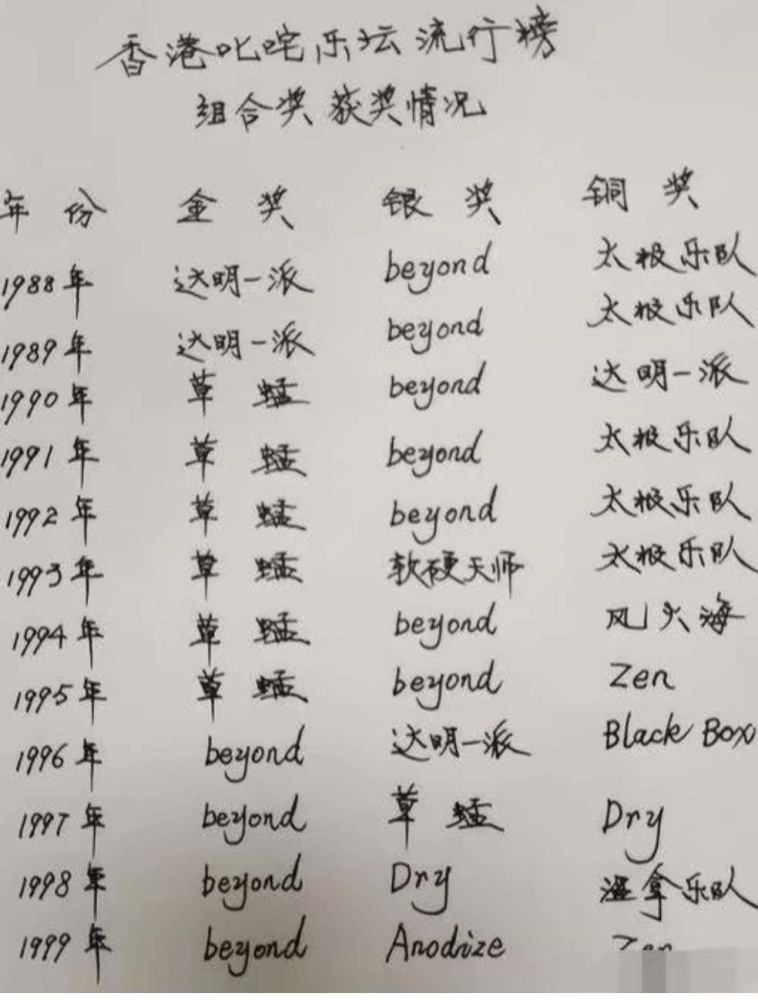 香港叱咤乐坛流行榜
组合奖 获奖情况
年份 金奖 银奖 铜奖
1988年 达明一派 beyond 太极乐队
1989年 达明一派 beyond 太极乐队
1990年 草蜢 beyond 达明一派
1991年 草蜢 beyond 太极乐队
1992年 草蜢 beyond 太极乐队
1993年 草蜢 软硬天师 太极乐队
1994年 草蜢 beyond 风火海
1995年 草蜢 beyond Zen
1996年 beyond 达明一派 Black Box
1997年 beyond 草蜢 Dry
1998年 beyond Dry 拿乐队
1999年 beyond Anodize Zen